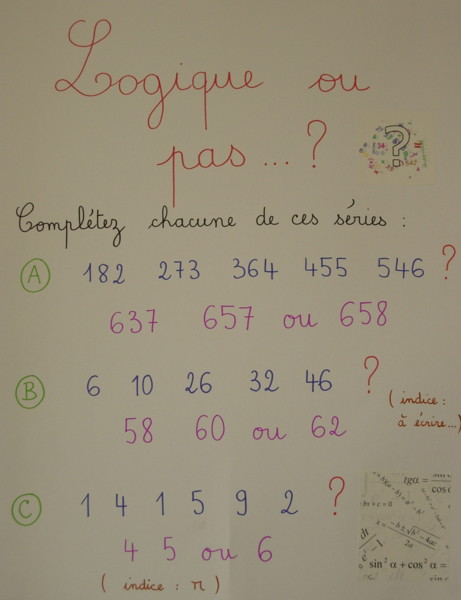 Logique ou
pas... ?
Complétez chacune de ces séries :
A 182 273 364 455 546 ?
637 657 ou 658
B 6 10 26 32 46 ?
(indice :
à écrire...)
58 60 ou 62
C 1 4 1 5 9 2 ?
4 5 ou 6
(indice : π)